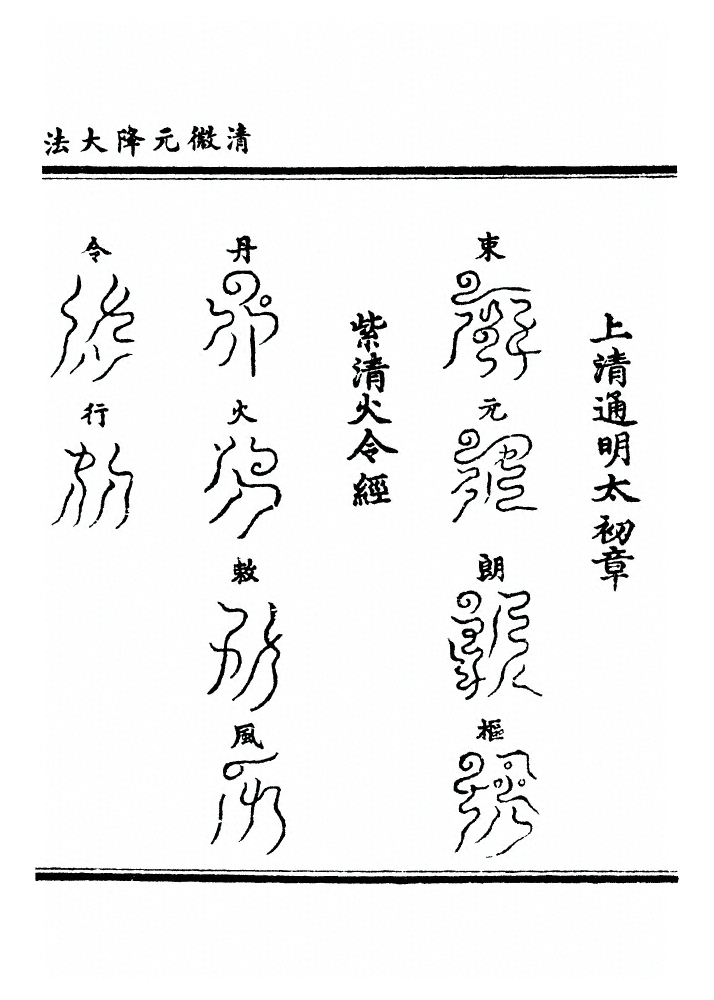 清微元降大法
上清通明太初章
東 元 朗 樞
紫清火令經
丹 火 敕 風
令 行